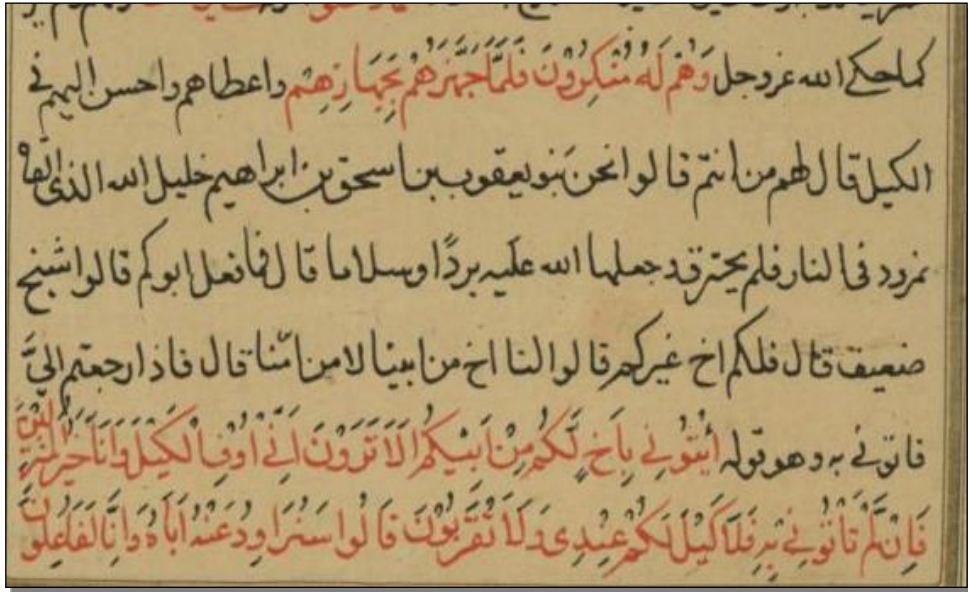 كما حكى الله عزوجل وَهُمْ لَهُ مُنْكِرُوْنَ فَلَمَّا جَهَّزَهُمْ بِجَهَازِهِمْ واعطاهم واحسن اليهم في
الكيل قال لهم من انتم قالوا نحن بَنو يعقوب بن اسحق بن ابراهيم خليل الله الذى القاه
نمرود فى النار فلم يحترق وجعلها الله علَيه بردًا وسلاما قال فما فعل ابوكم قالوا شيخ
ضعيف قال فلكم اخ غيركم قالوا لنا اخ من ابينا لا من امّنا قال فاذا رجعتم اليَّ
فاتونى به وهو قوله ائْتُوْنِي بِاَخٍ لَّكُمْ مِنْ اَبِيْكُمْ اَلَا تَرَوْنَ اَنِّي اُوْفِى الْكَيْلَ وَاَنَا خَيْرُ الْمُنْزِلِيْنَ
فَاِنْ لَّمْ تَأْتُوْنِي بِهِ فَلَا كَيْلَ لَكُمْ عِنْدِى وَلَا تَقْرَبُوْنَ قَالُوا سَنُرَاوِدُ عَنْهُ اَبَاهُ وَاِنَّا لَفَاعِلُوْنَ